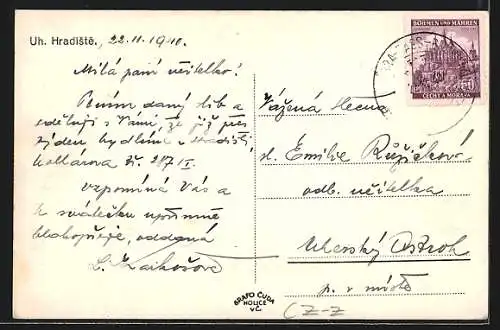 Uh. Hradiště, 22.11.1940.
Milá paní učitelko!
Plním daný slib a
sděluji s Vámi, že již přes
týden bydlíme v Hradišti,
Kollárova č. 287 II.
Vzpomíná Vás a
k svátečku upřímně
blahopřeje, oddaná
L.
Vážená slečna
sl. Emilie Růžičková
odb. učitelka
Uherský Ostroh
p. v místě
BÖHMEN UND MÄHREN
ČECHY A MORAVA
GRAFO ČUDA
HOLICE
V.Č.